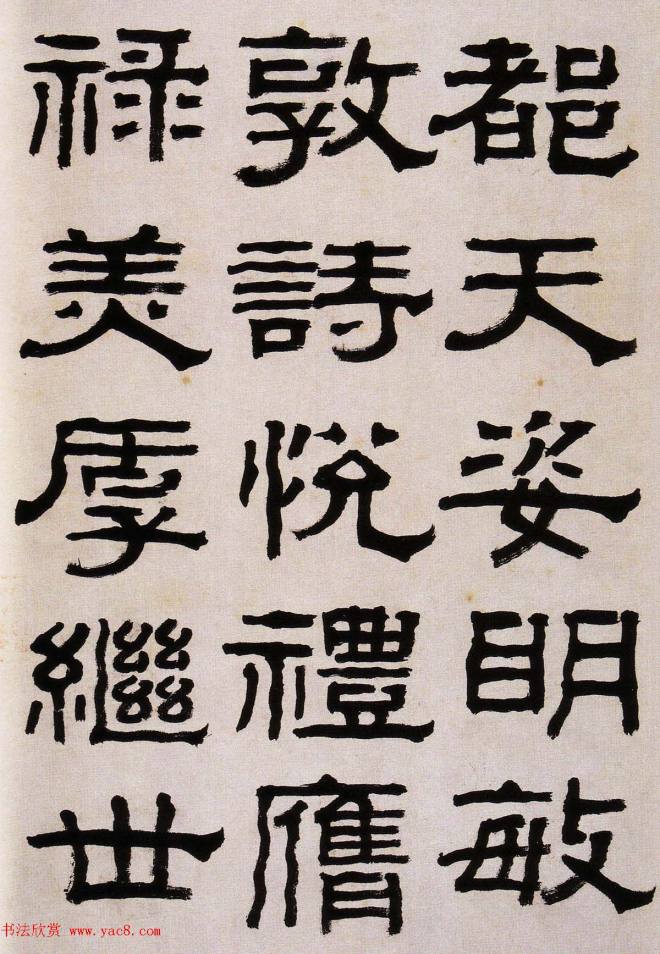 都天姿明敏
敦詩悅禮膺
祿美厚繼世
书法欣赏 www.yac8.com